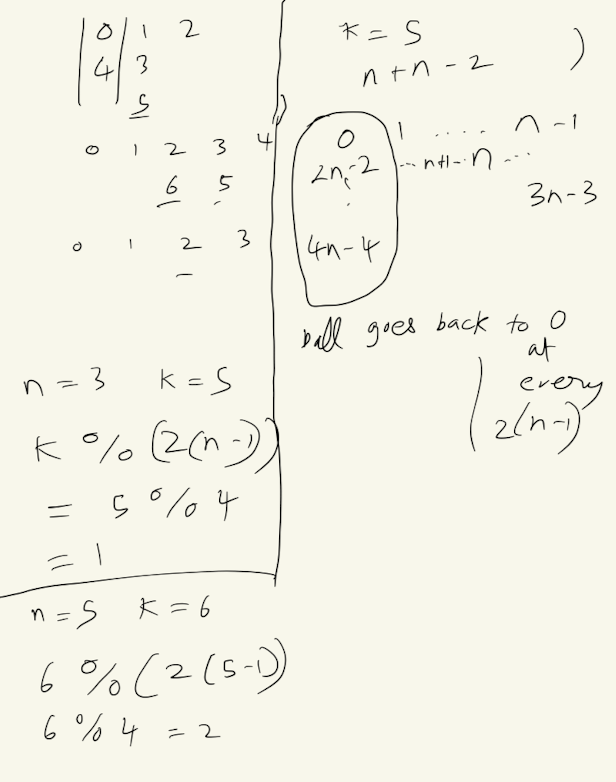 0 1 2
4 3
5
0 1 2 3 4
6 5
0 1 2 3
n = 3 k = 5
k % (2(n-1))
= 5 % 4
= 1
n = 5 k = 6
6 % (2(5-1))
6 % 4 = 2
k = 5
n + n - 2 )
0 1 .... n - 1
2n-2 ... n+1 .. n ...
3n-3
4n-4
ball goes back to 0
at
every
2(n-1)